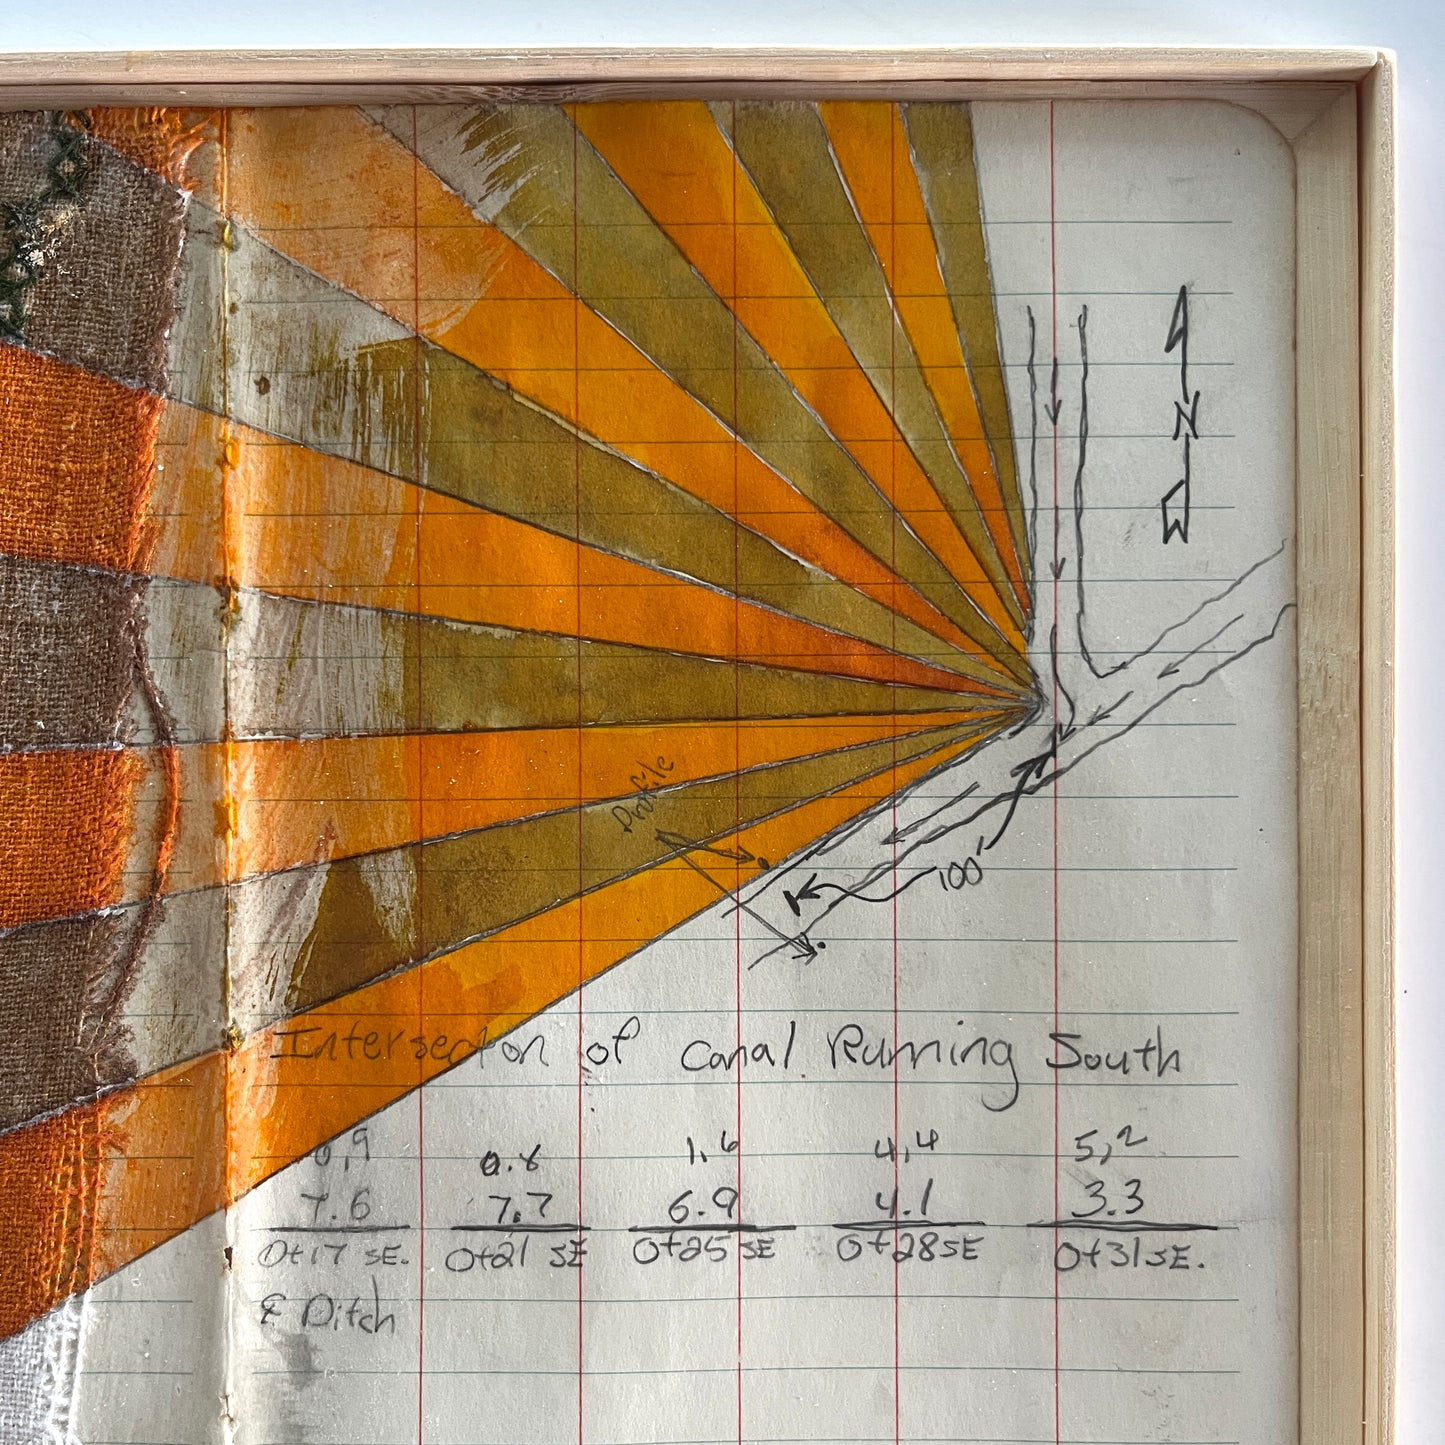 N
Profile
100'
Intersection of Canal Running South
0,9 0.8 1,6 4,4 5,2
7.6 7.7 6.9 4.1 3.3
0+17 SE. 0+21 SE 0+25 SE 0+28 SE 0+31 SE.
Ditch